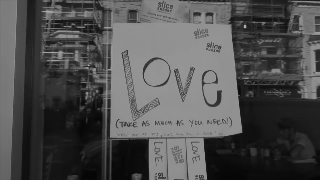 slice
slice
slice
Love
(TAKE AS MUCH AS YOU NEED)
LOVE
slice
LOVE